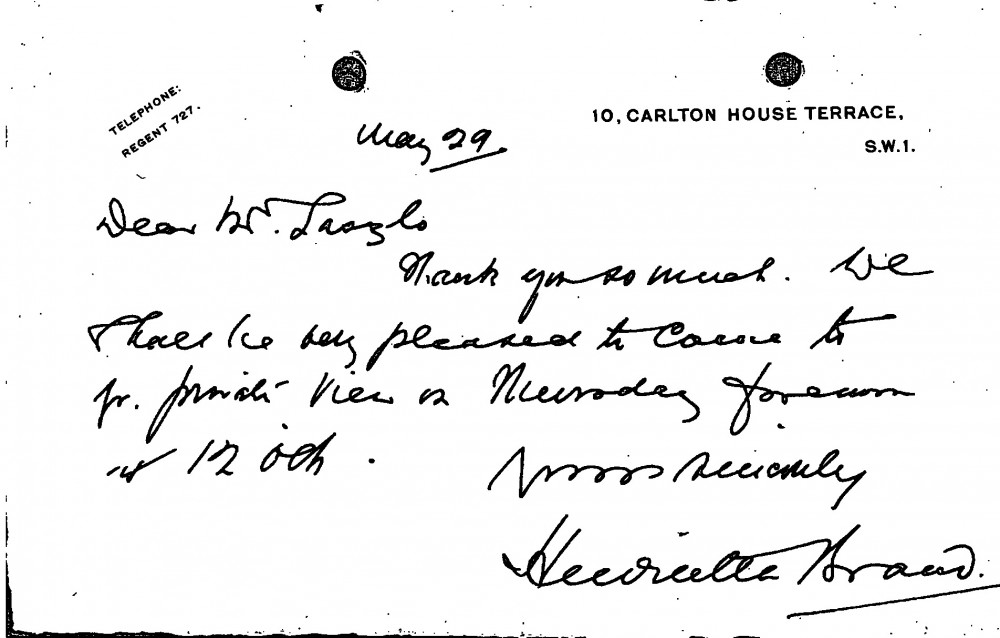 TELEPHONE:
REGENT 727.
10, CARLTON HOUSE TERRACE,
S.W.1.
May 29.
Dear Mr. Laszlo
Thank you so much. We
shall be very pleased to come to
yr. private view on Thursday forenoon
at 12 ock.
Yours sincerely
Henrietta Brand.